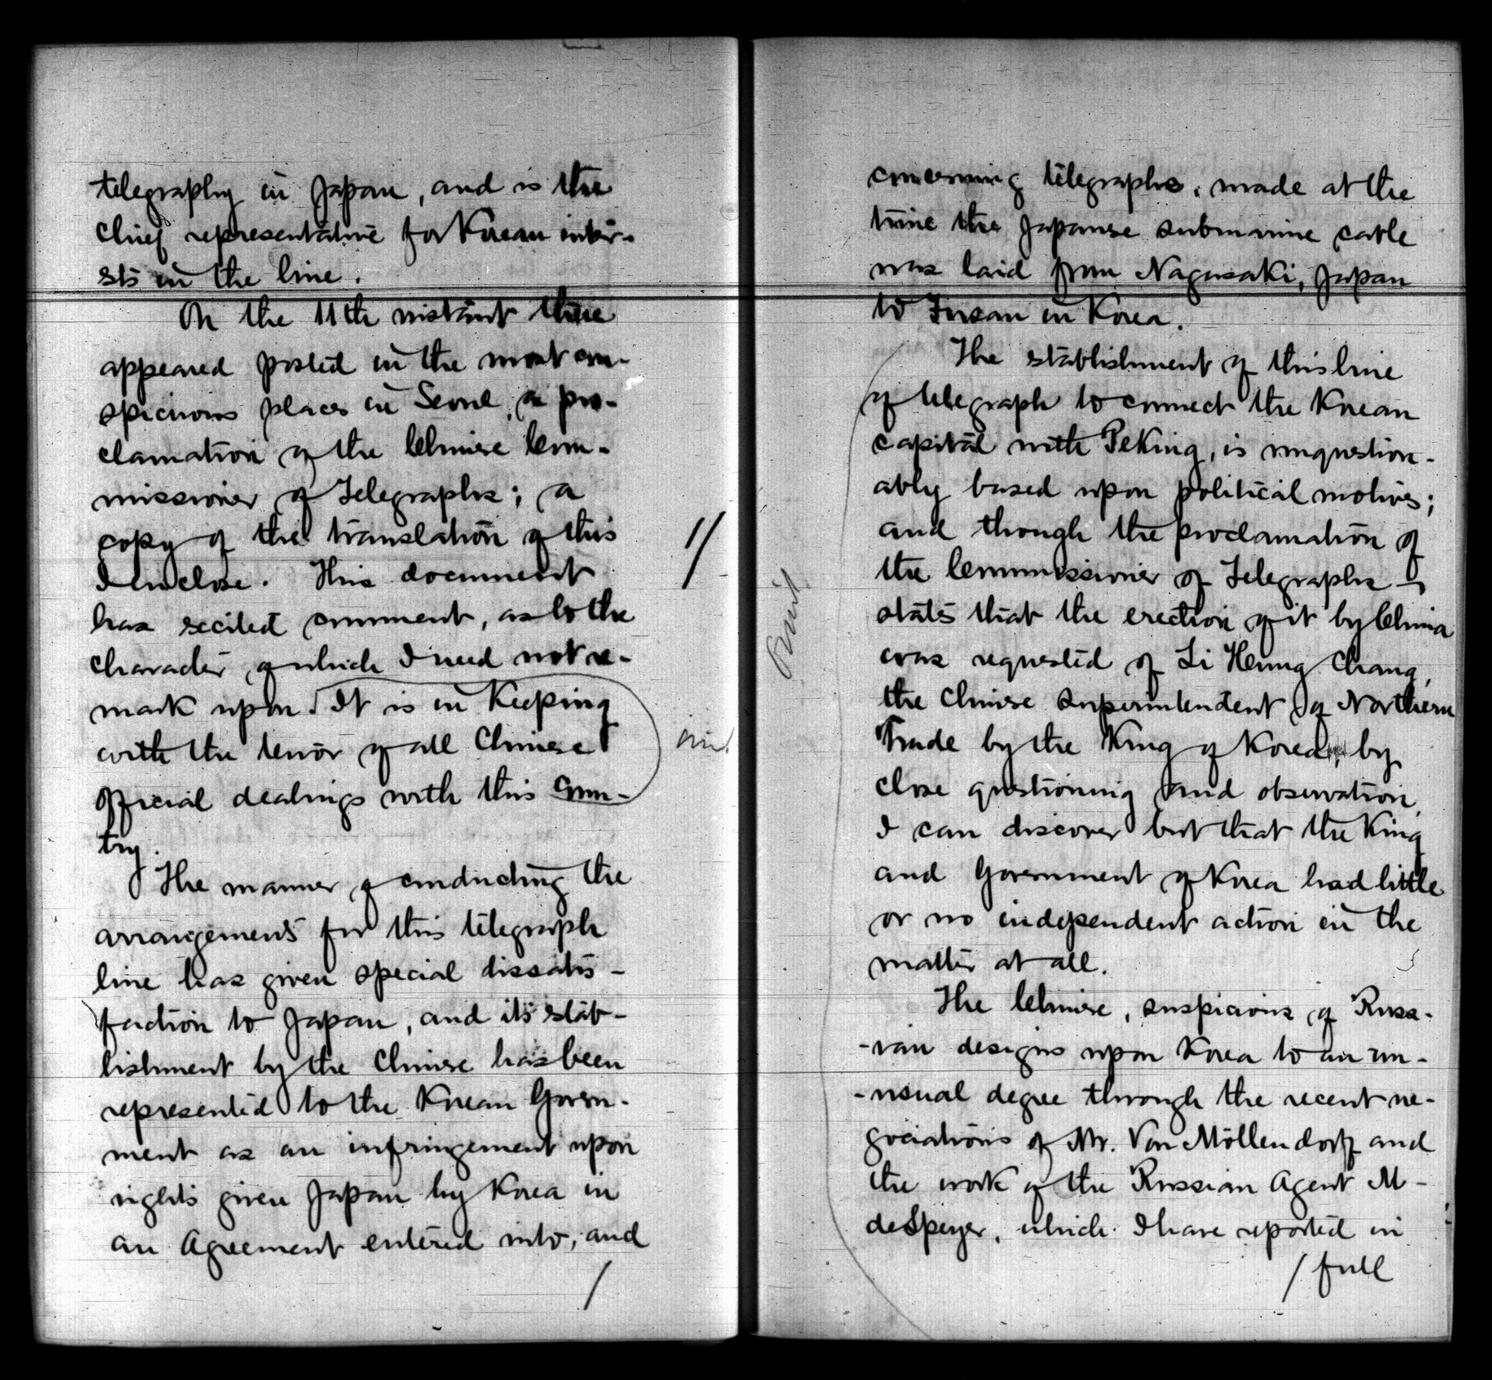 telegraphy in Japan, and is the
chief representative for Korean inter-
sts in the line.
On the 11th instant there
appeared posted in the most con-
spicuous places in Seoul, a pro-
clamation of the Chinese Com-
missioner of Telegraphs; a
copy of the translation of this
I enclose. This document
has excited comment, as to the
character of which I need not re-
mark upon. It is in keeping
with the tenor of all Chinese
official dealings with this coun-
try.
The manner of conducting the
arrangements for this telegraph
line has given special dissatis-
faction to Japan, and its stab-
lishment by the Chinese has been
represented to the Korean Govern-
ment as an infringement upon
rights given Japan by Korea in
an Agreement entered into, and
/
//
concerning telegraphs, made at the
time the Japanese submarine cable
was laid from Nagasaki, Japan
to Fusan in Korea.
The establishment of this line
of telegraph to connect the Korean
capital with Peking, is unquestion-
ably based upon political motives;
and though the proclamation of
the Commissioner of Telegraphs
states that the erection of it by China
was requested of Li Hung Chang,
the Chinese Superintendent of Northern
Trade by the King of Korea, by
close questioning and observation,
I can discover but that the King
and Government of Korea had little
or no independent action in the
matter at all.
The Chinese, suspicious of Russ-
-ian designs upon Korea to an un-
-usual degree through the recent ne-
gociations of Mr. Von Möllendorff and
the work of the Russian Agent M-
deSpeyer, which I have reported in
/ full